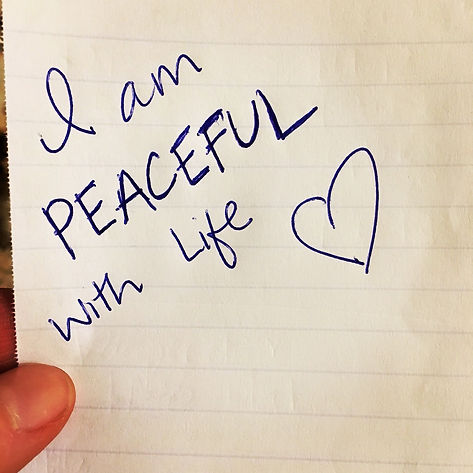 I am
PEACEFUL
with Life